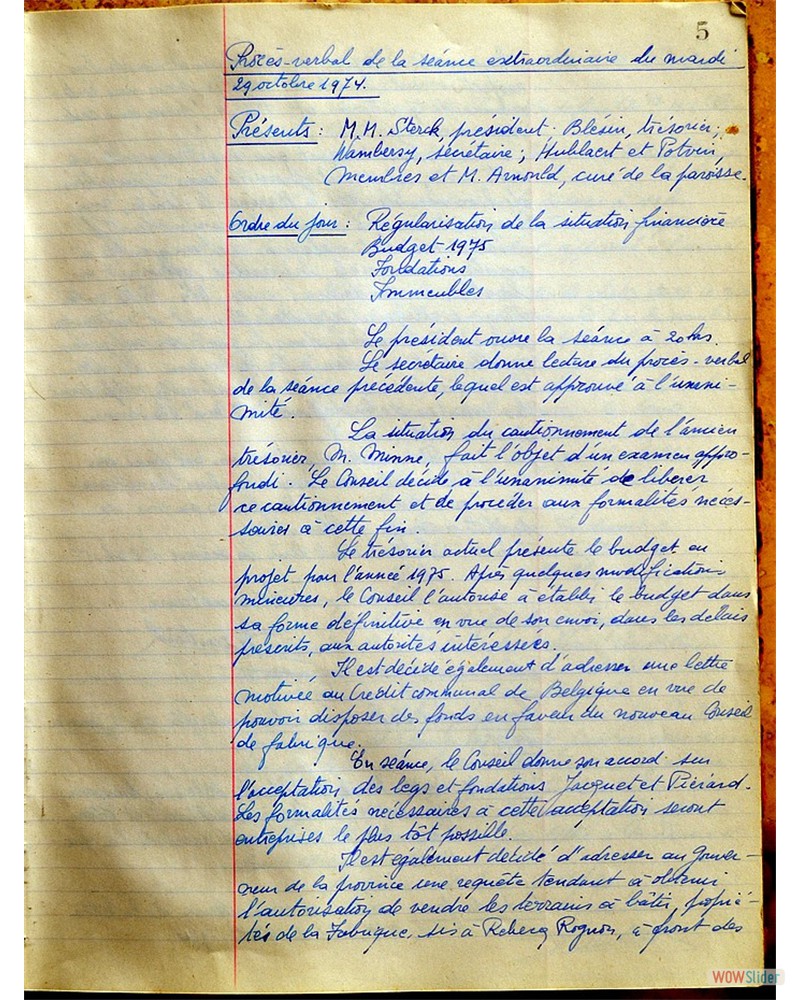 5
Procès-verbal de la séance extraordinaire du mardi
29 octobre 1974.
Présents : M.M. Sterck, président ; Blésin, trésorier ;
Wambersy, secrétaire ; Hublaert et Potvin,
Membres et M. Arnould, curé de la paroisse.
Ordre du jour : Régularisation de la situation financière
Budget 1975
Fondations
Immeubles
Le président ouvre la séance à 20 hrs.
Le secrétaire donne lecture du procès-verbal
de la séance précédente, lequel est approuvé à l'unani-
mité.
La situation du cautionnement de l'ancien
trésorier, M. Minne, fait l'objet d'un examen appro-
fondi. Le Conseil décide à l'unanimité de libérer
ce cautionnement et de procéder aux formalités néces-
saires à cette fin.
Le trésorier actuel présente le budget en
projet pour l'année 1975. Après quelques modifications
mineures, le Conseil l'autorise à établir le budget dans
sa forme définitive en vue de son envoi, dans les délais
prescrits, aux autorités intéressées.
Il est décidé également d'adresser une lettre
motivée au Crédit communal de Belgique en vue de
pouvoir disposer des fonds en faveur du nouveau Conseil
de fabrique.
En séance, le Conseil donne son accord sur
l'acceptation des legs et fondations Jacquet et Piérard.
Les formalités nécessaires à cette acceptation seront
entreprises le plus tôt possible.
Il est également décidé d'adresser au Gouver-
neur de la province une requête tendant à obtenir
l'autorisation de vendre les terrains à bâtir, proprié-
tés de la Fabrique, sis à Rebecq Rognon, à front des
WOWSlider